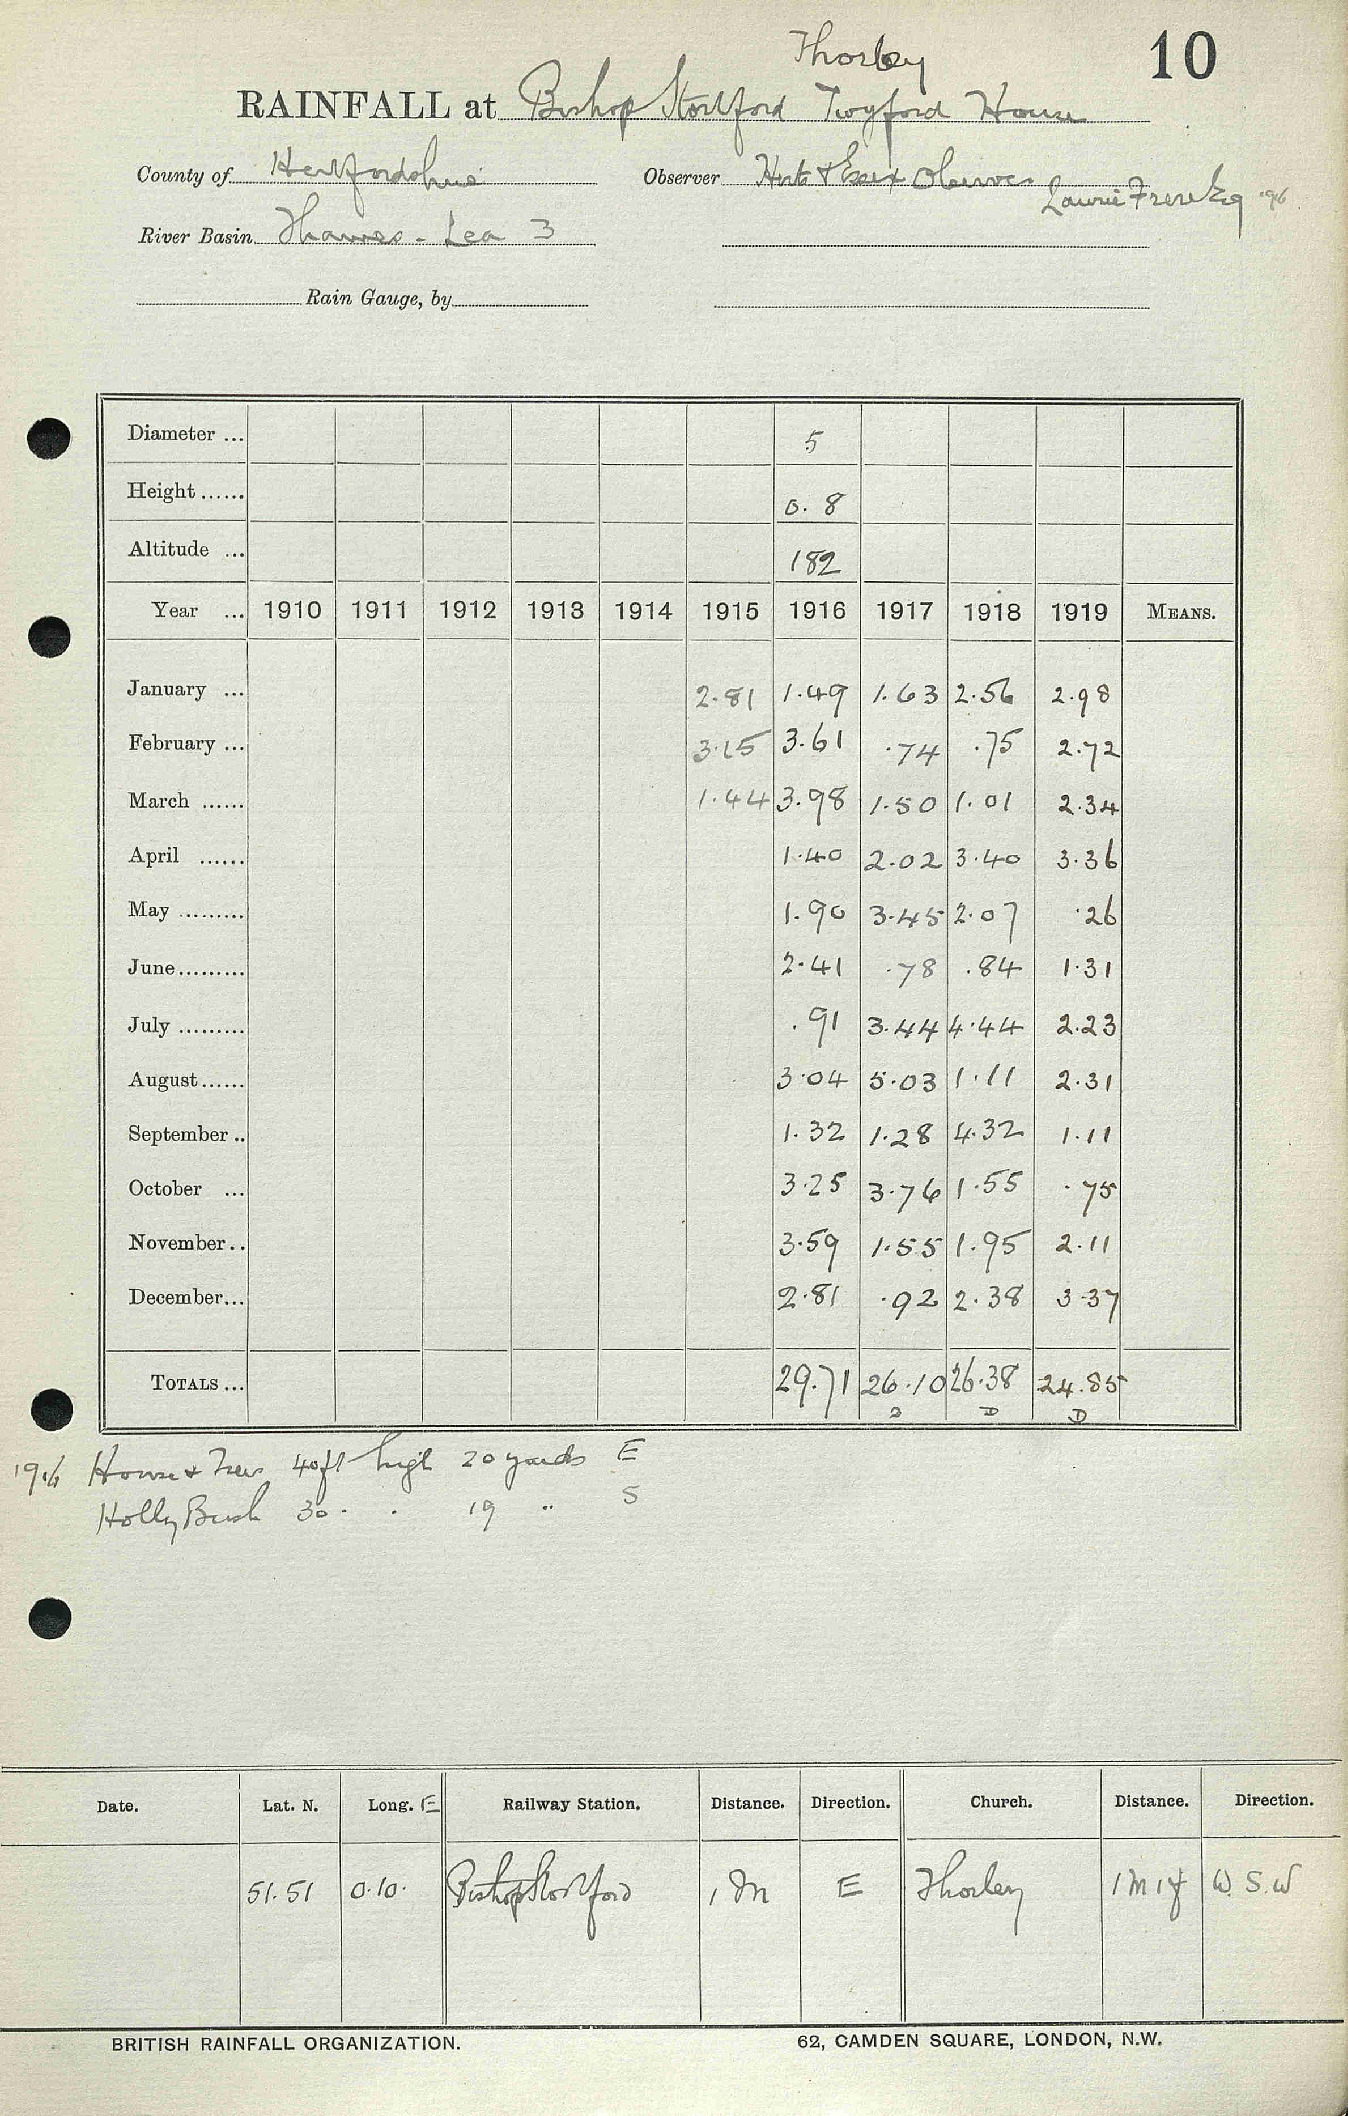 10
Thorley
RAINFALL at Bishop Stortford Twyford House
County of Hertfordshire Observer Herts & Essex Observer
Laurie Frere Esq 1916
River Basin Thames - Lea 3
Rain Gauge, by
Diameter ... 5
Height ...... 0.8
Altitude ... 182
Year ... 1910 1911 1912 1913 1914 1915 1916 1917 1918 1919 MEANS.
January ... 2.81 1.49 1.63 2.56 2.98
February ... 3.15 3.61 .74 .75 2.72
March ...... 1.44 3.98 1.50 1.01 2.34
April ...... 1.40 2.02 3.40 3.36
May ......... 1.90 3.45 2.07 .26
June......... 2.41 .78 .84 1.31
July ......... .91 3.44 4.44 2.23
August...... 3.04 5.03 1.11 2.31
September .. 1.32 1.28 4.32 1.11
October ... 3.25 3.76 1.55 .75
November.. 3.59 1.55 1.95 2.11
December... 2.81 .92 2.38 3.37
TOTALS ... 29.71 26.10 26.38 24.85
D D D
1916 House & Trees 40 ft high 20 yards E
Holly Bush 30 . . 19 " S
Date. Lat. N. Long. E Railway Station. Distance. Direction. Church. Distance. Direction.
51.51 0.10. Bishop Stortford 1 M E Thorley 1 M 1 f W.S.W
BRITISH RAINFALL ORGANIZATION. 62, CAMDEN SQUARE, LONDON, N.W.